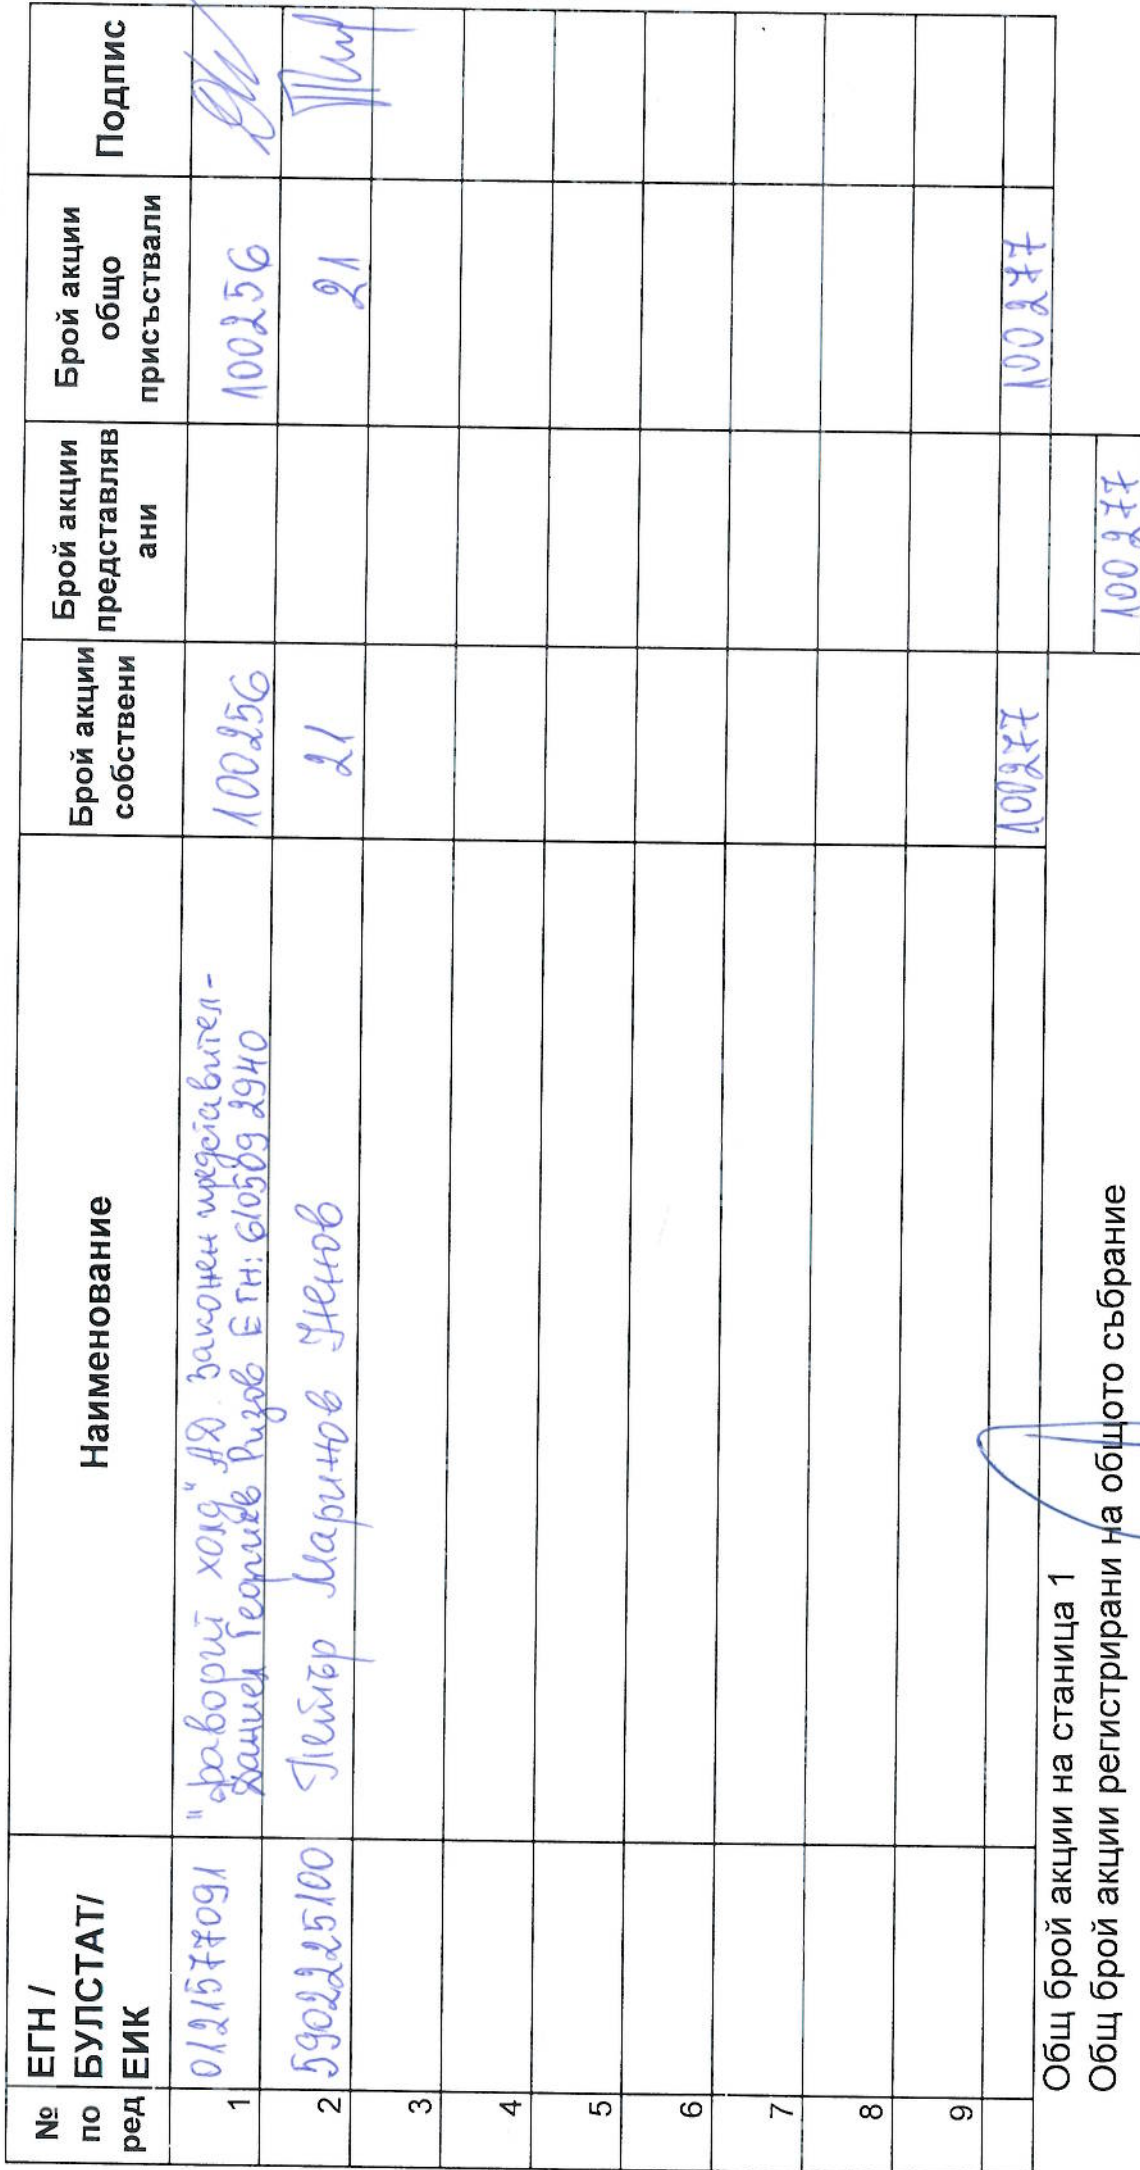 № по ред ЕГН / БУЛСТАТ/ ЕИК Наименование Брой акции собствени Брой акции представляв ани Брой акции общо присъствали Подпис
1 0121577091 "Фаворит холд" АД. Законен представител-
Даниел Георгиев Ризов ЕГН: 6105092940 100256 100256
2 5902225100 Петър Маринов Ненов 21 21
3
4
5
6
7
8
9
100277 100277
Общ брой акции на станица 1
Общ брой акции регистрирани на общото събрание 100277